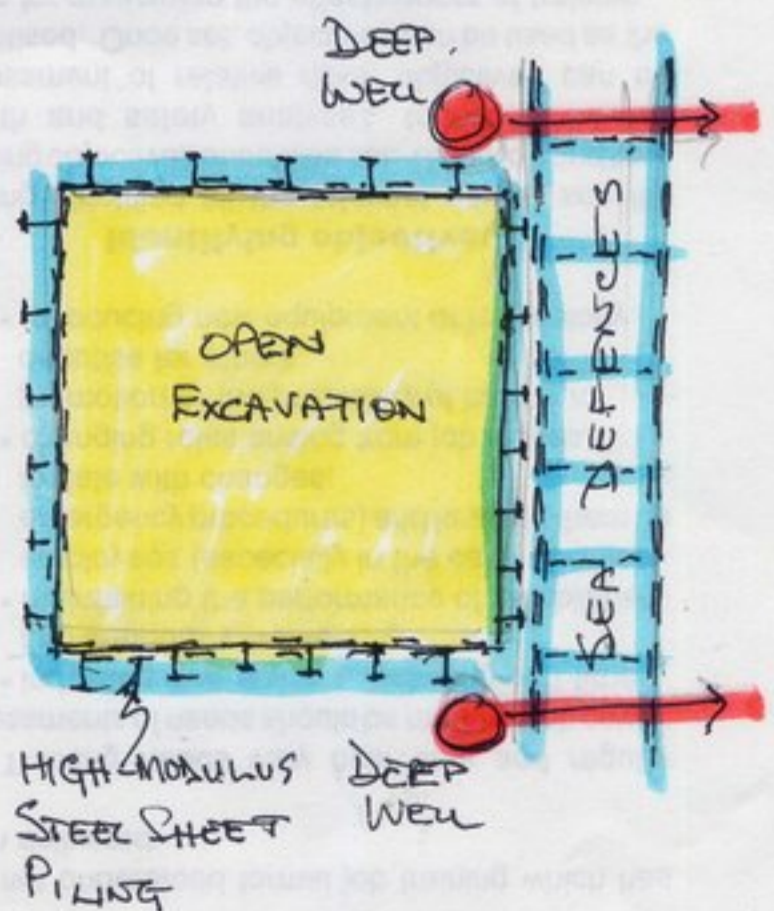 DEEP.
WELL
OPEN
EXCAVATION
SEA DEFENCES
HIGH-MODULUS
STEEL SHEET
PILING
DEEP
WELL